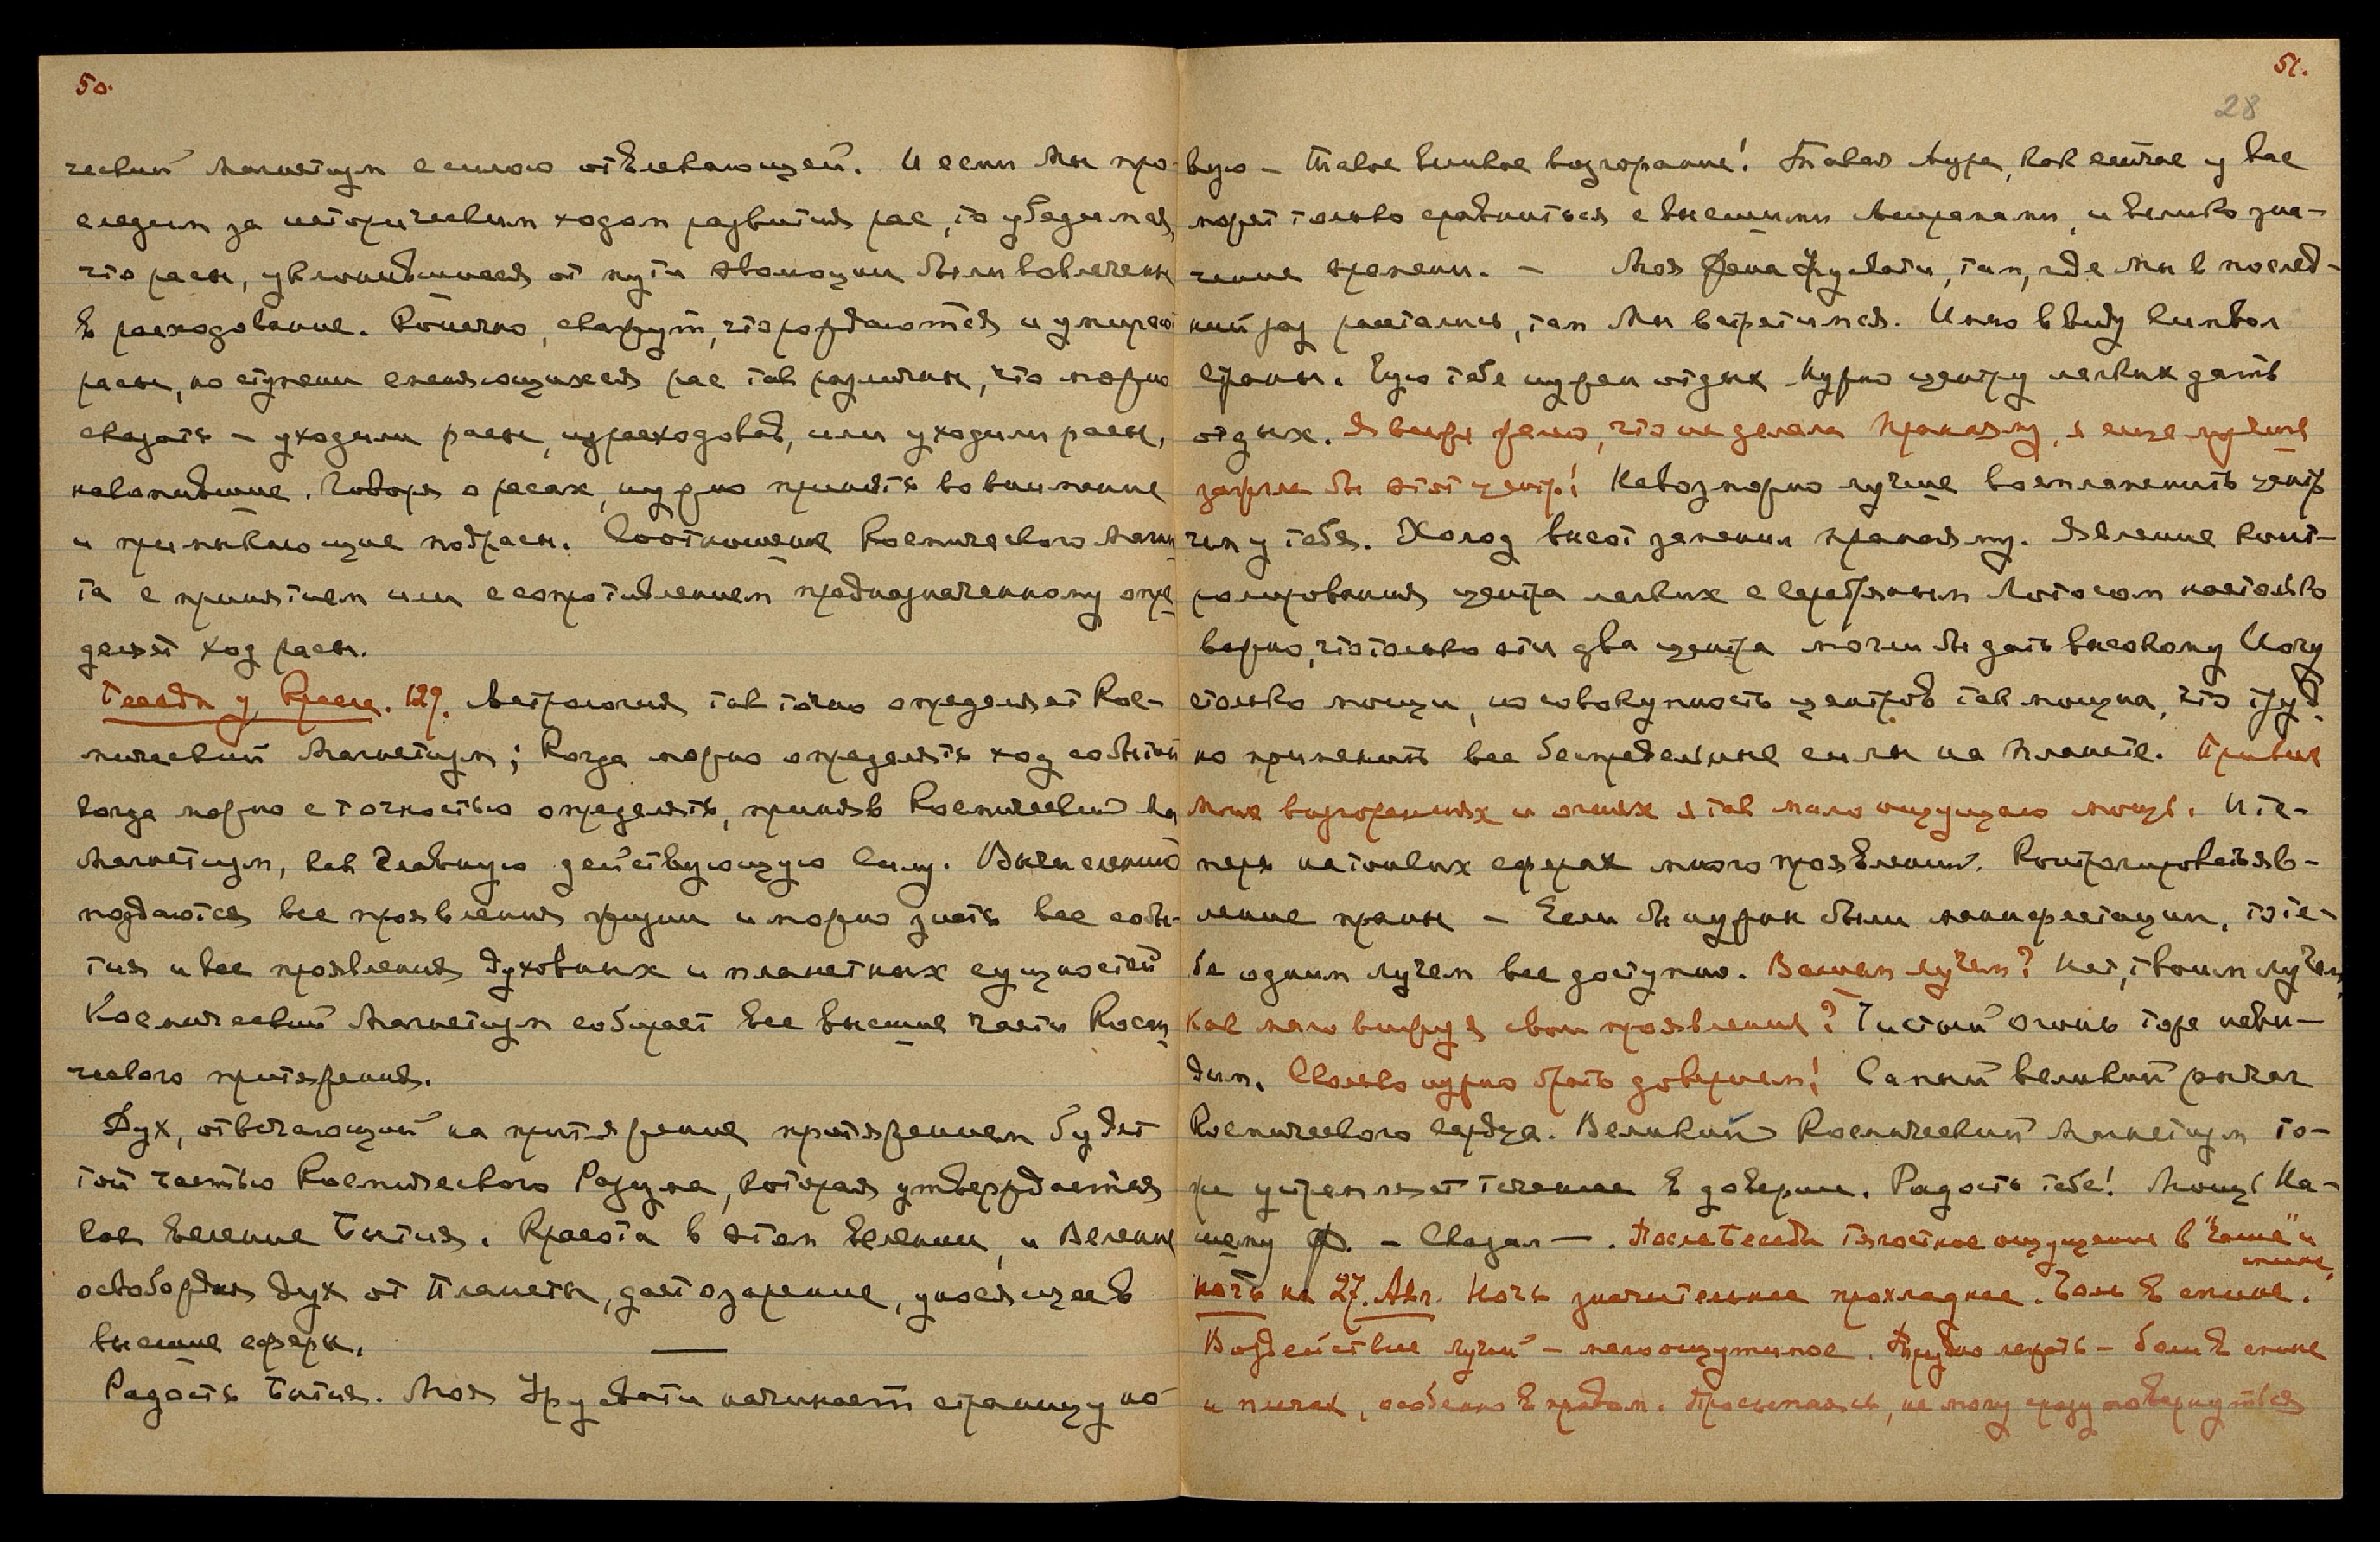 50.
ческий магнетизм с силою отвлекающей. И если мы про-
следим за историческим ходом развития рас, то убедимся,
что расы, уклонившиеся от пути эволюции были вовлечены
в расходование. Конечно, скажут, что рождаются и умирают
расы, но ступени сменяющихся рас так различны, что можно
сказать – уходили расы, израсходовав, или уходили расы,
накопившие. Говоря о расах, нужно принять во внимание
и примыкающие подрасы. Соотношение Космического Магни
та с принятием или с сопротивлением предназначенному опре
делят ход расы.
Беседа у Кресла. 127. Астрология так точно определяет Кос-
мический Магнетизм; Когда можно определять ход событий
когда можно с точностью определять, приняв Космический Ма
Магнетизм, как Главную действующую Силу. Вычислению
поддаются все проявления жизни и можно знать все собы-
тия и все проявления духовных и планетных сущностей
Космический Магнетизм собирает все высшие части Косми
ческого притяжения.
Дух, отвечающий на притяжение притяжением будет
той частью Космического Разума, которая утверждается
как веление Бытия. Красота в этом Велении, и Веление
освобождая дух от Планеты, дает озарение, уносящее в
высшие сферы.
Радость Бытия. Моя Урусвати начинает страницу но-
51.
28
вую – Такое великое возгорание! Такая Аура, как сейчас у вас
может только сравниться с высшими и велико зна-
чение времени. – Моя Урусвати, там, где мы в послед-
ний раз расстались, там мы встретимся. Имею в виду Символ
Страны. Чую тебе нужен отдых Нужно центру легких дать
отдых. Я вижу что не делала Пранаяму, я еще лучше
зажгла бы этот центр! Невозможно лучше воспламенить центр
чем у тебя. Холод высот заменил пранаяму. Явление конт-
ролирования центра легких с Серебряным Лотосом настолько
важно, что только эти два центра могли бы дать высокому Йогу
столько мощи, но совокупность центров так мощна, что труд-
но применить все беспредельные силы на Планете. При всех
моих возгораниях и огнях я так мало ощущаю мощь. И те-
перь на тонких сферах много проявлений. Контролировать яв-
ление праны – Если бы нужны были манифестации, то те-
бе одним лучом все доступно. Вашим лучем? Нет, твоим лучем,
Как мало вижу я свои проявления? Чистый огонь тоже неви-
дим. Сколько нужно брать доверием! Самый великий рычаг
Космического сердца. Великий Космический Магнетизм то-
же устремляет течение в доверии. Радость тебе! Мощь На-
шему Ф. – Сказал –. После Беседы тягостное ощущение в "Чаше" и
спине.
Ночь на 27. Авг. Ночь значительнее прохладнее. Боль в спине.
Воздействие лучей – мало ощутимое. Трудно лежать – боли в спине
и плечах, особенно в правом. Просыпаясь, не могу сразу повернуться